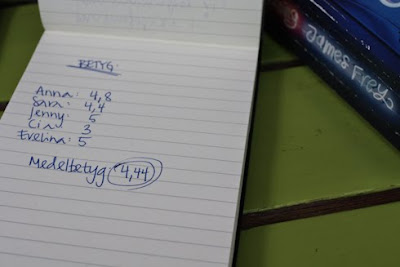 BETYG:
Anna: 4,8
Sara: 4,4
Jenny: 5
Cia: 3
Evelina: 5
Medelbetyg 4,44
James Frey